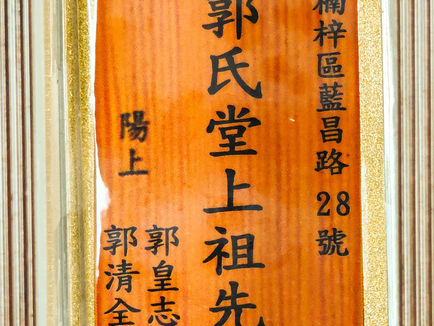 楠梓區藍昌路28號
郭氏堂上祖先
陽上
郭皇志
郭清全